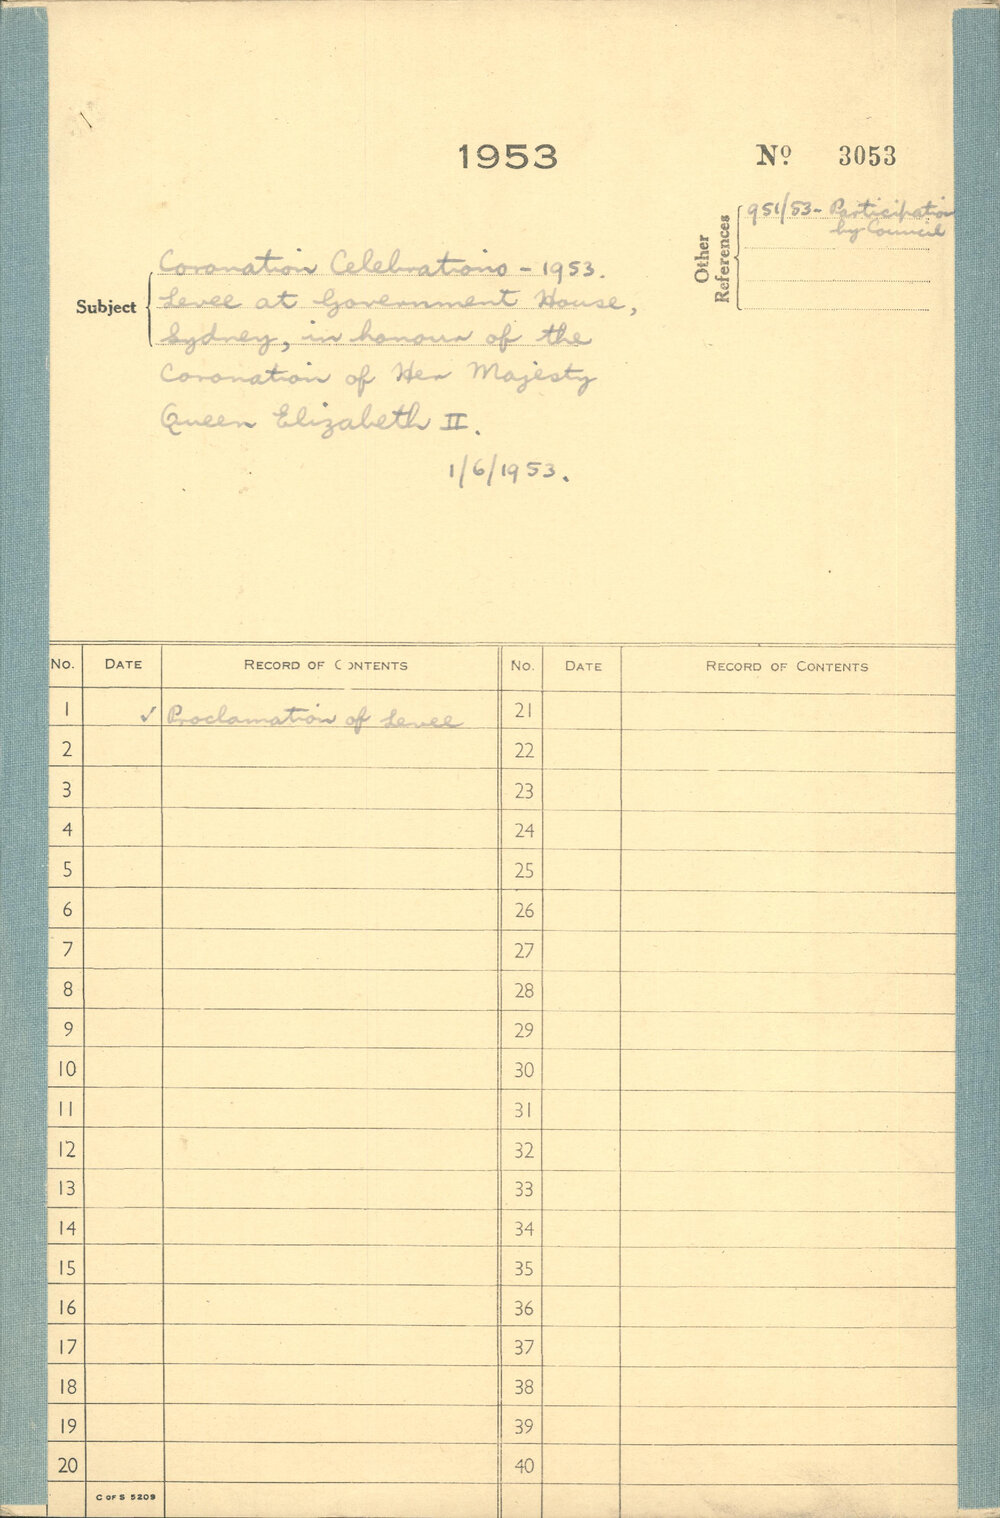 1953
Nº 3053
Other References
951/53- Participation
by Council
Subject
Coronation Celebrations - 1953.
Levee at Government House,
Sydney, in honour of the
Coronation of Her Majesty
Queen Elizabeth II.
1/6/1953.
No. DATE RECORD OF CONTENTS No. DATE RECORD OF CONTENTS
1 ✓ Proclamation of Levee 21
2 22
3 23
4 24
5 25
6 26
7 27
8 28
9 29
10 30
11 31
12 32
13 33
14 34
15 35
16 36
17 37
18 38
19 39
20 40
C OF S 5209